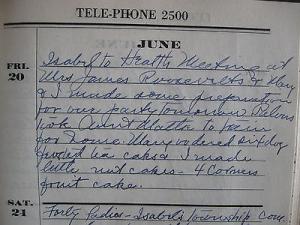 TELE-PHONE 2500
JUNE
FRI.
20
Isabel to Health Meeting at
Mrs James Roosevelts & Mary
& I made some preparation
for our party tomorrow
took Aunt Matta to train
for home. Mary ordered six doz
frosted tea cakes I made
little nut cakes - 4 Corners
fruit cake.
SAT.
21
Forty ladies - Isabels Township Com